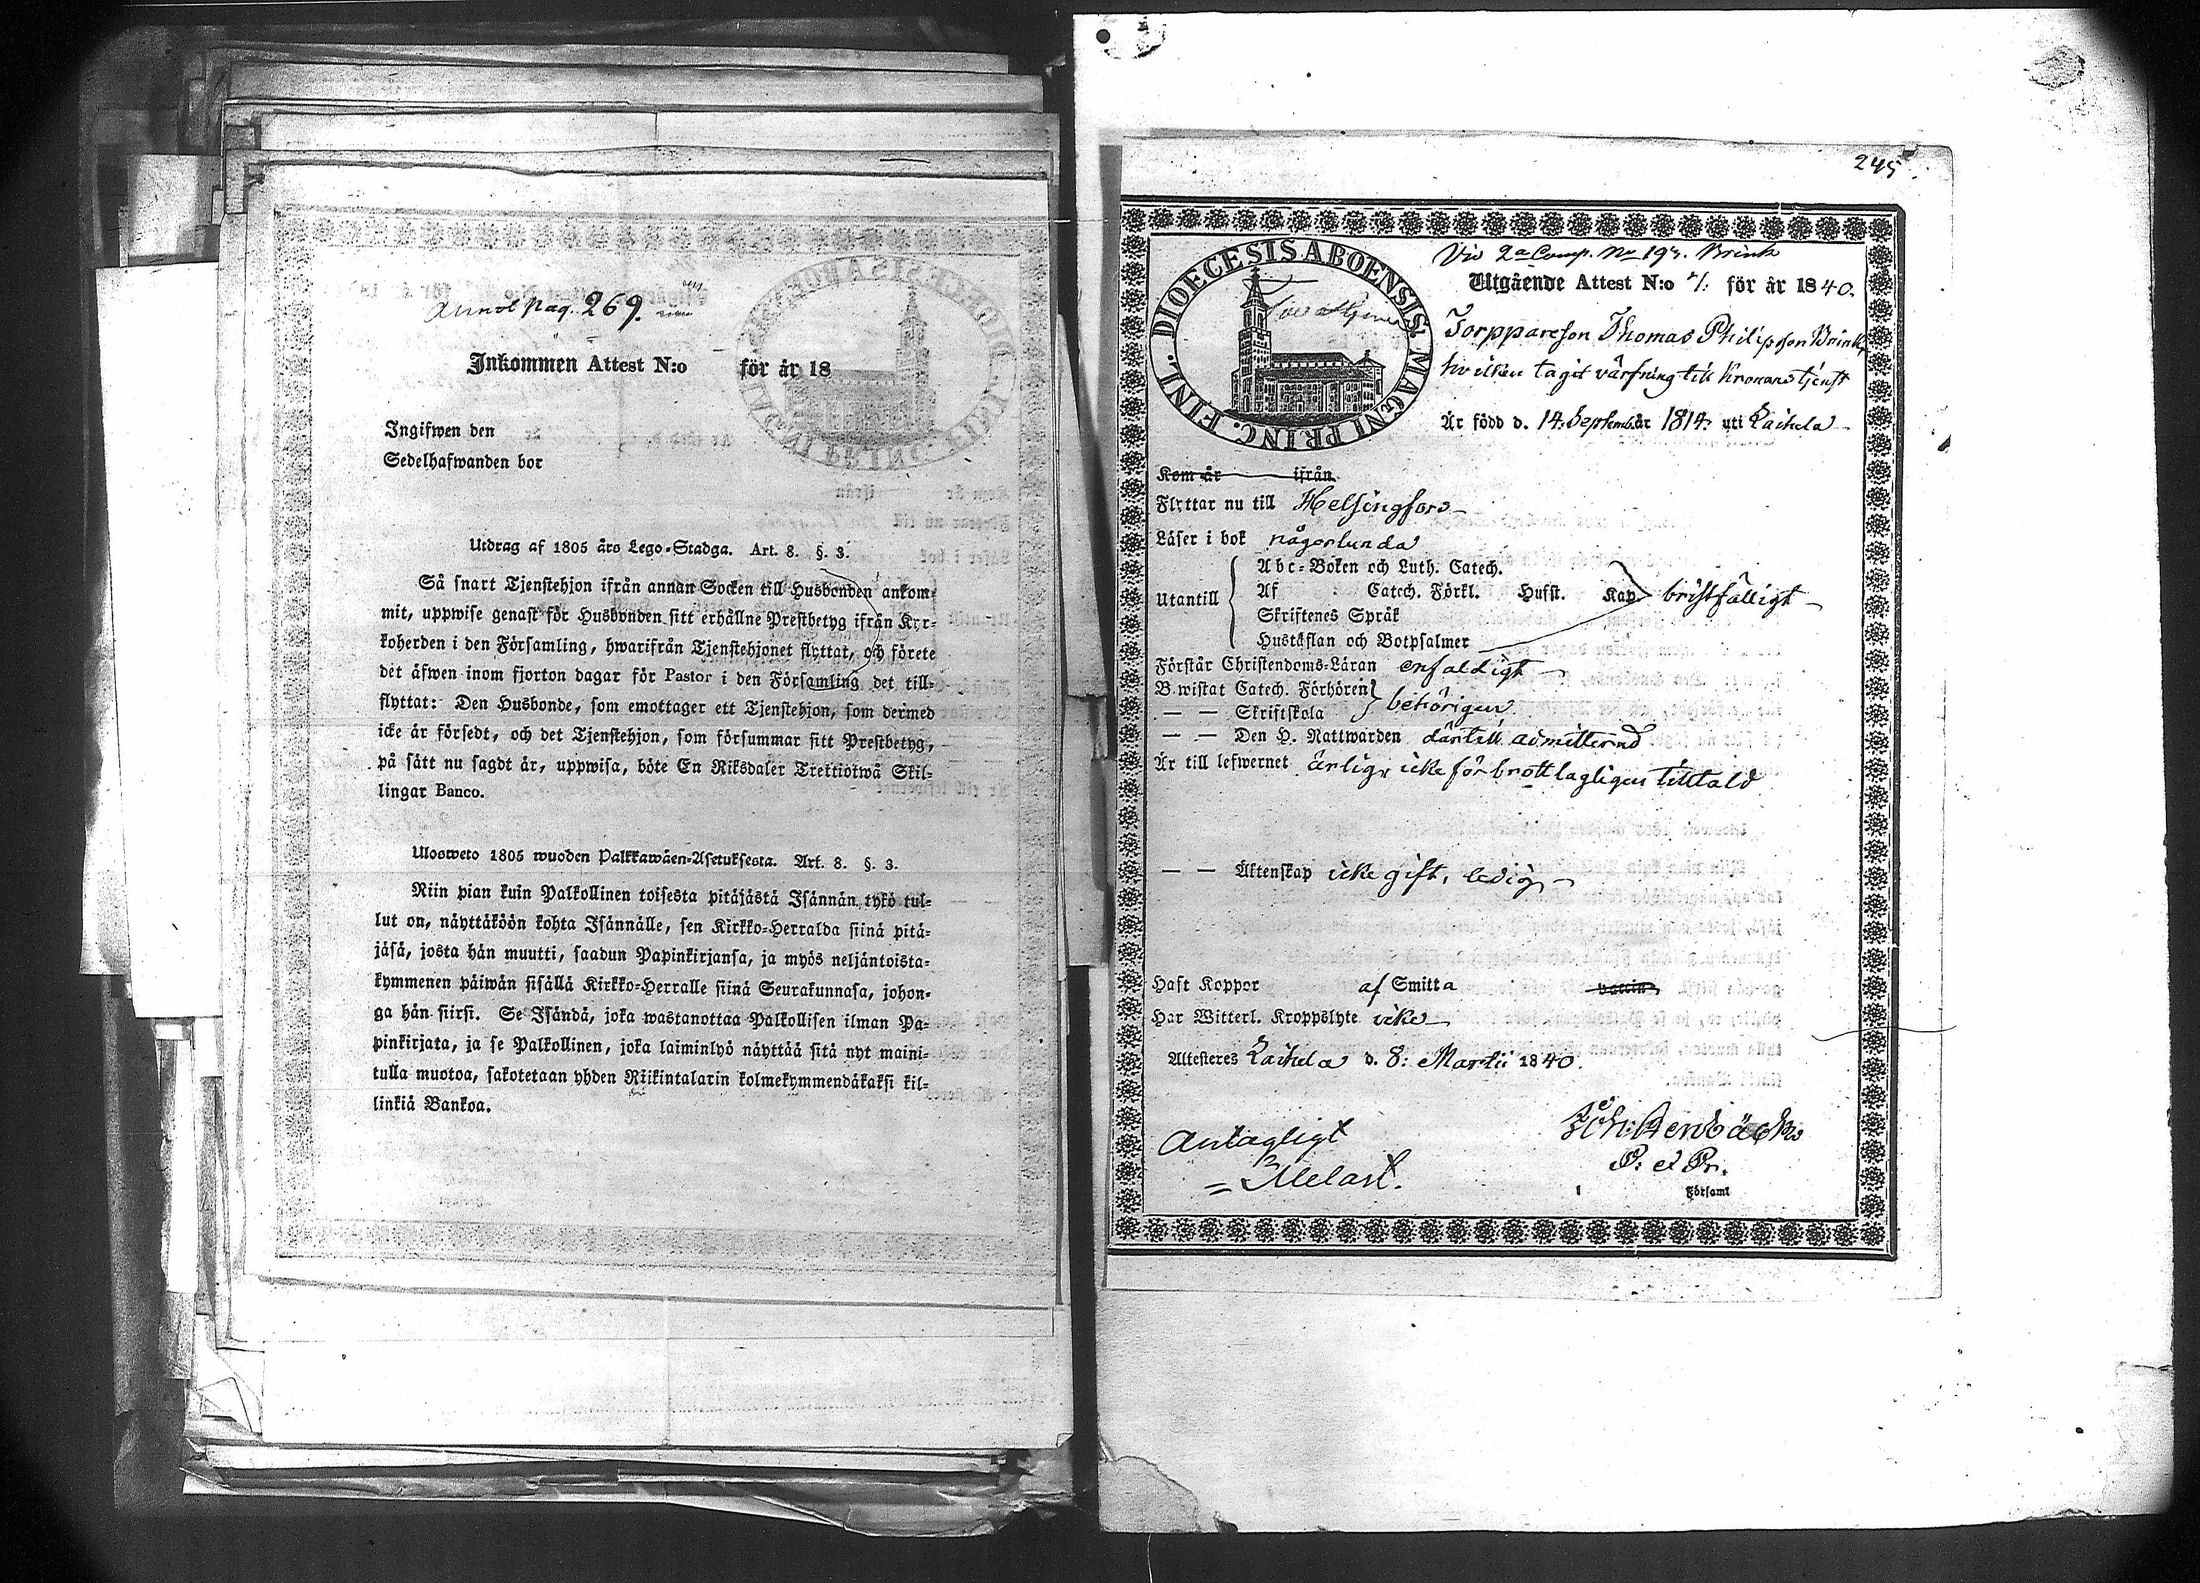 Annot pag. 269.
Inkommen Attest N:o för år 18
Ingifwen den
Sedelhafwanden bor
Utdrag af 1805 års Lego-Stadga. Art. 8. §. 3.
Så snart Tjenstehjon ifrån annan Socken till Husbonden ankom-
mit, uppwise genast för Husbonden sitt erhållne Prestbetyg ifrån Kyr-
koherden i den Församling, hwarifrån Tjenstehjonet flyttat, och förete
det äfwen inom fjorton dagar för Pastor i den Församling det till-
flyttat: Den Husbonde, som emottager ett Tjenstehjon, som dermed
icke är försedt, och det Tjenstehjon, som försummar sitt Prestbetyg,
på sätt nu sagdt är, uppwisa, böte En Riksdaler Trettiotwå Skil-
lingar Banco.
Ulosweto 1805 wuoden Palkkawäen-Asetuksesta. Art. 8. §. 3.
Niin pian kuin Palkollinen toisesta pitäjästä Isännän tykö tul-
lut on, näyttäköön kohta Isännälle, sen Kirkko-Herralda siinä pitä-
jäsä, josta hän muutti, saadun Papinkirjansa, ja myös neljäntoista-
kymmenen päiwän sisällä Kirkko-Herralle siinä Seurakunnasa, johon-
ga hän siirsi. Se Isändä, joka wastanottaa Palkollisen ilman Pa-
pinkirjata, ja se Palkollinen, joka laiminlyö näyttää sitä nyt maini-
tulla muotoa, sakotetaan yhden Riikintalarin kolmekymmendäkaksi kil-
linkiä Bankoa.
245
DIOECESIS ABOENSIS. MAGNI PRINC. FINL.
Vid 2a Comp. No 19 Brink
Utgående Attest N:o för år 1840.
Torppareson Thomas Philipsson Brink,
hvilken tagit värfning till Kronans tjenst
Är född d. 14 September år 1814 uti Laihela
Kom år ifrån
Flyttar nu till Helsingfors
Läser i bok någorlunda
Abc-Boken och Luth. Catech.
Utantill Af Catech. Förkl. Husst. Kap bristfälligt
Skriftenes Språk
Hustaflan och Botpsalmer
Förstår Christendoms-Läran enfaldigt
B.wistat Catech. Förhören behörigen
— — Skriftskola
— — Den H. Nattwarden därtill admitterad
Är till lefwernet ärlig, icke för brott lagligen tilltald
— — Äktenskap icke gift, ledig
Haft Koppor af Smitta vaccin
Har Witterl. Kroppslyte icke
Attesteres Laihela d. 8: Martii 1840.
Antagligt
Melart.
Joh: Bendbäck
P. et Pr.
Församl